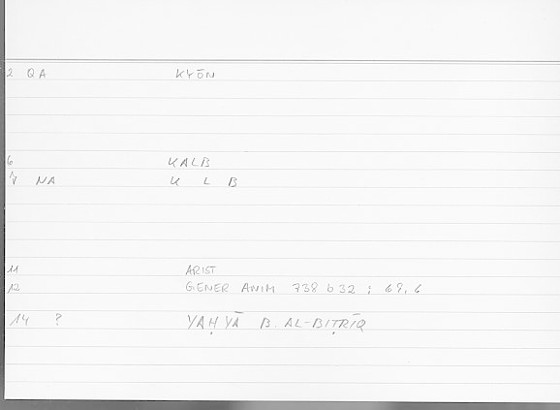 2 QA KYŌN
6 KALB
8 NA K L B
11 ARIST
12 GENER ANIM 738 b 32 ; 69,6
14 ? YAḤYĀ B. AL-BIṬRĪQ